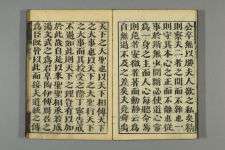 公卒無以勝夫人欲之私矣精
則察夫二者之間而不雜也一
則守其本心之正而不離也從
事於斯無少間斷必使道心常
為一身之主而人心每聽命焉
則危者安微者著而動靜云為
自無過不及之差矣夫堯舜禹
天下之大聖也以天下相傳天下
之大事也以天下之大聖行天下
之大事而其授受之際丁寧告戒
不過如此則天下之理豈有以加
於此哉自是以來聖聖相承若成
湯文武之為君皋陶伊傅周召之
為臣既皆以此而接夫道統之傳